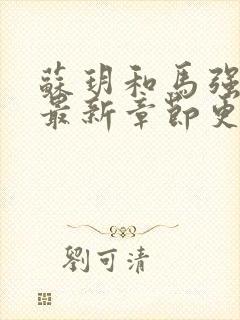 蘇玥和馬強
最新章節更
劉可清